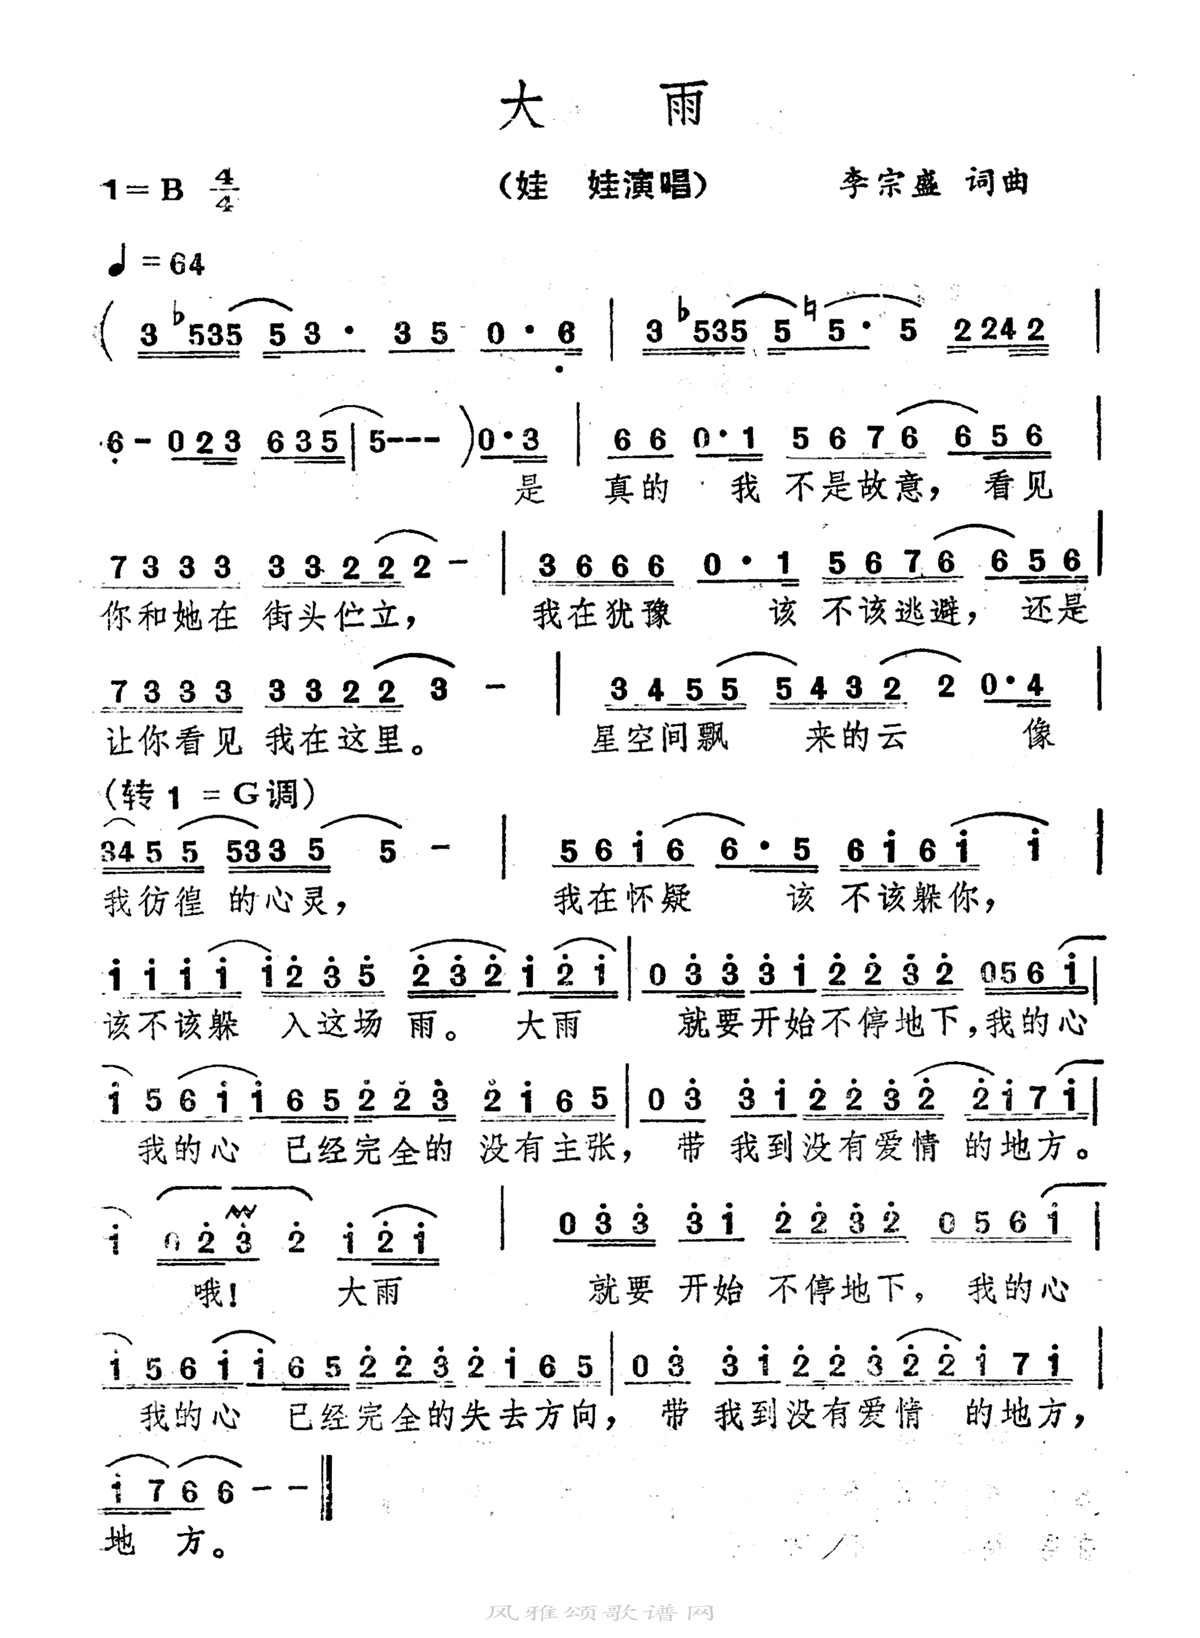 大 雨
1=B 4/4 (娃 娃演唱) 李宗盛 词曲
♩=64
( 3 ♭535 53· 35 0·6 | 3 ♭535 5 ♮5· 5 2242 |
6- 023 635 | 5--- ) 0·3 | 66 0·1 5676 656
是 真的 我 不是故意, 看见
7333 33222 2- | 3666 0·1 5676 656 |
你和她在 街头伫立, 我在犹豫 该 不该逃避, 还是
7333 3322 3 - | 3455 5432 2 0·4 |
让你看见 我在这里。 星空间飘 来的云 像
(转1=G调)
3455 5335 5 - | 5616 6·5 6161 1 |
我彷徨 的心灵, 我在怀疑 该 不该躲你,
1111 1235 232 121 | 033 31 2232 0561 |
该不该躲 入这场 雨。 大雨 就要开始不停地下,我的心
1561 165 223 2165 | 03 312232 2171 |
我的心 已经完全的 没有主张, 带 我到没有爱情 的地方。
1 023 2 121 | 033 31 2232 0561 |
哦! 大雨 就要 开始 不停地下, 我的心
1561 165 2232165 | 03 312232 2171 |
我的心 已经完全的失去方向, 带 我到没有爱情 的地方,
1766--
地 方。
风雅颂歌谱网